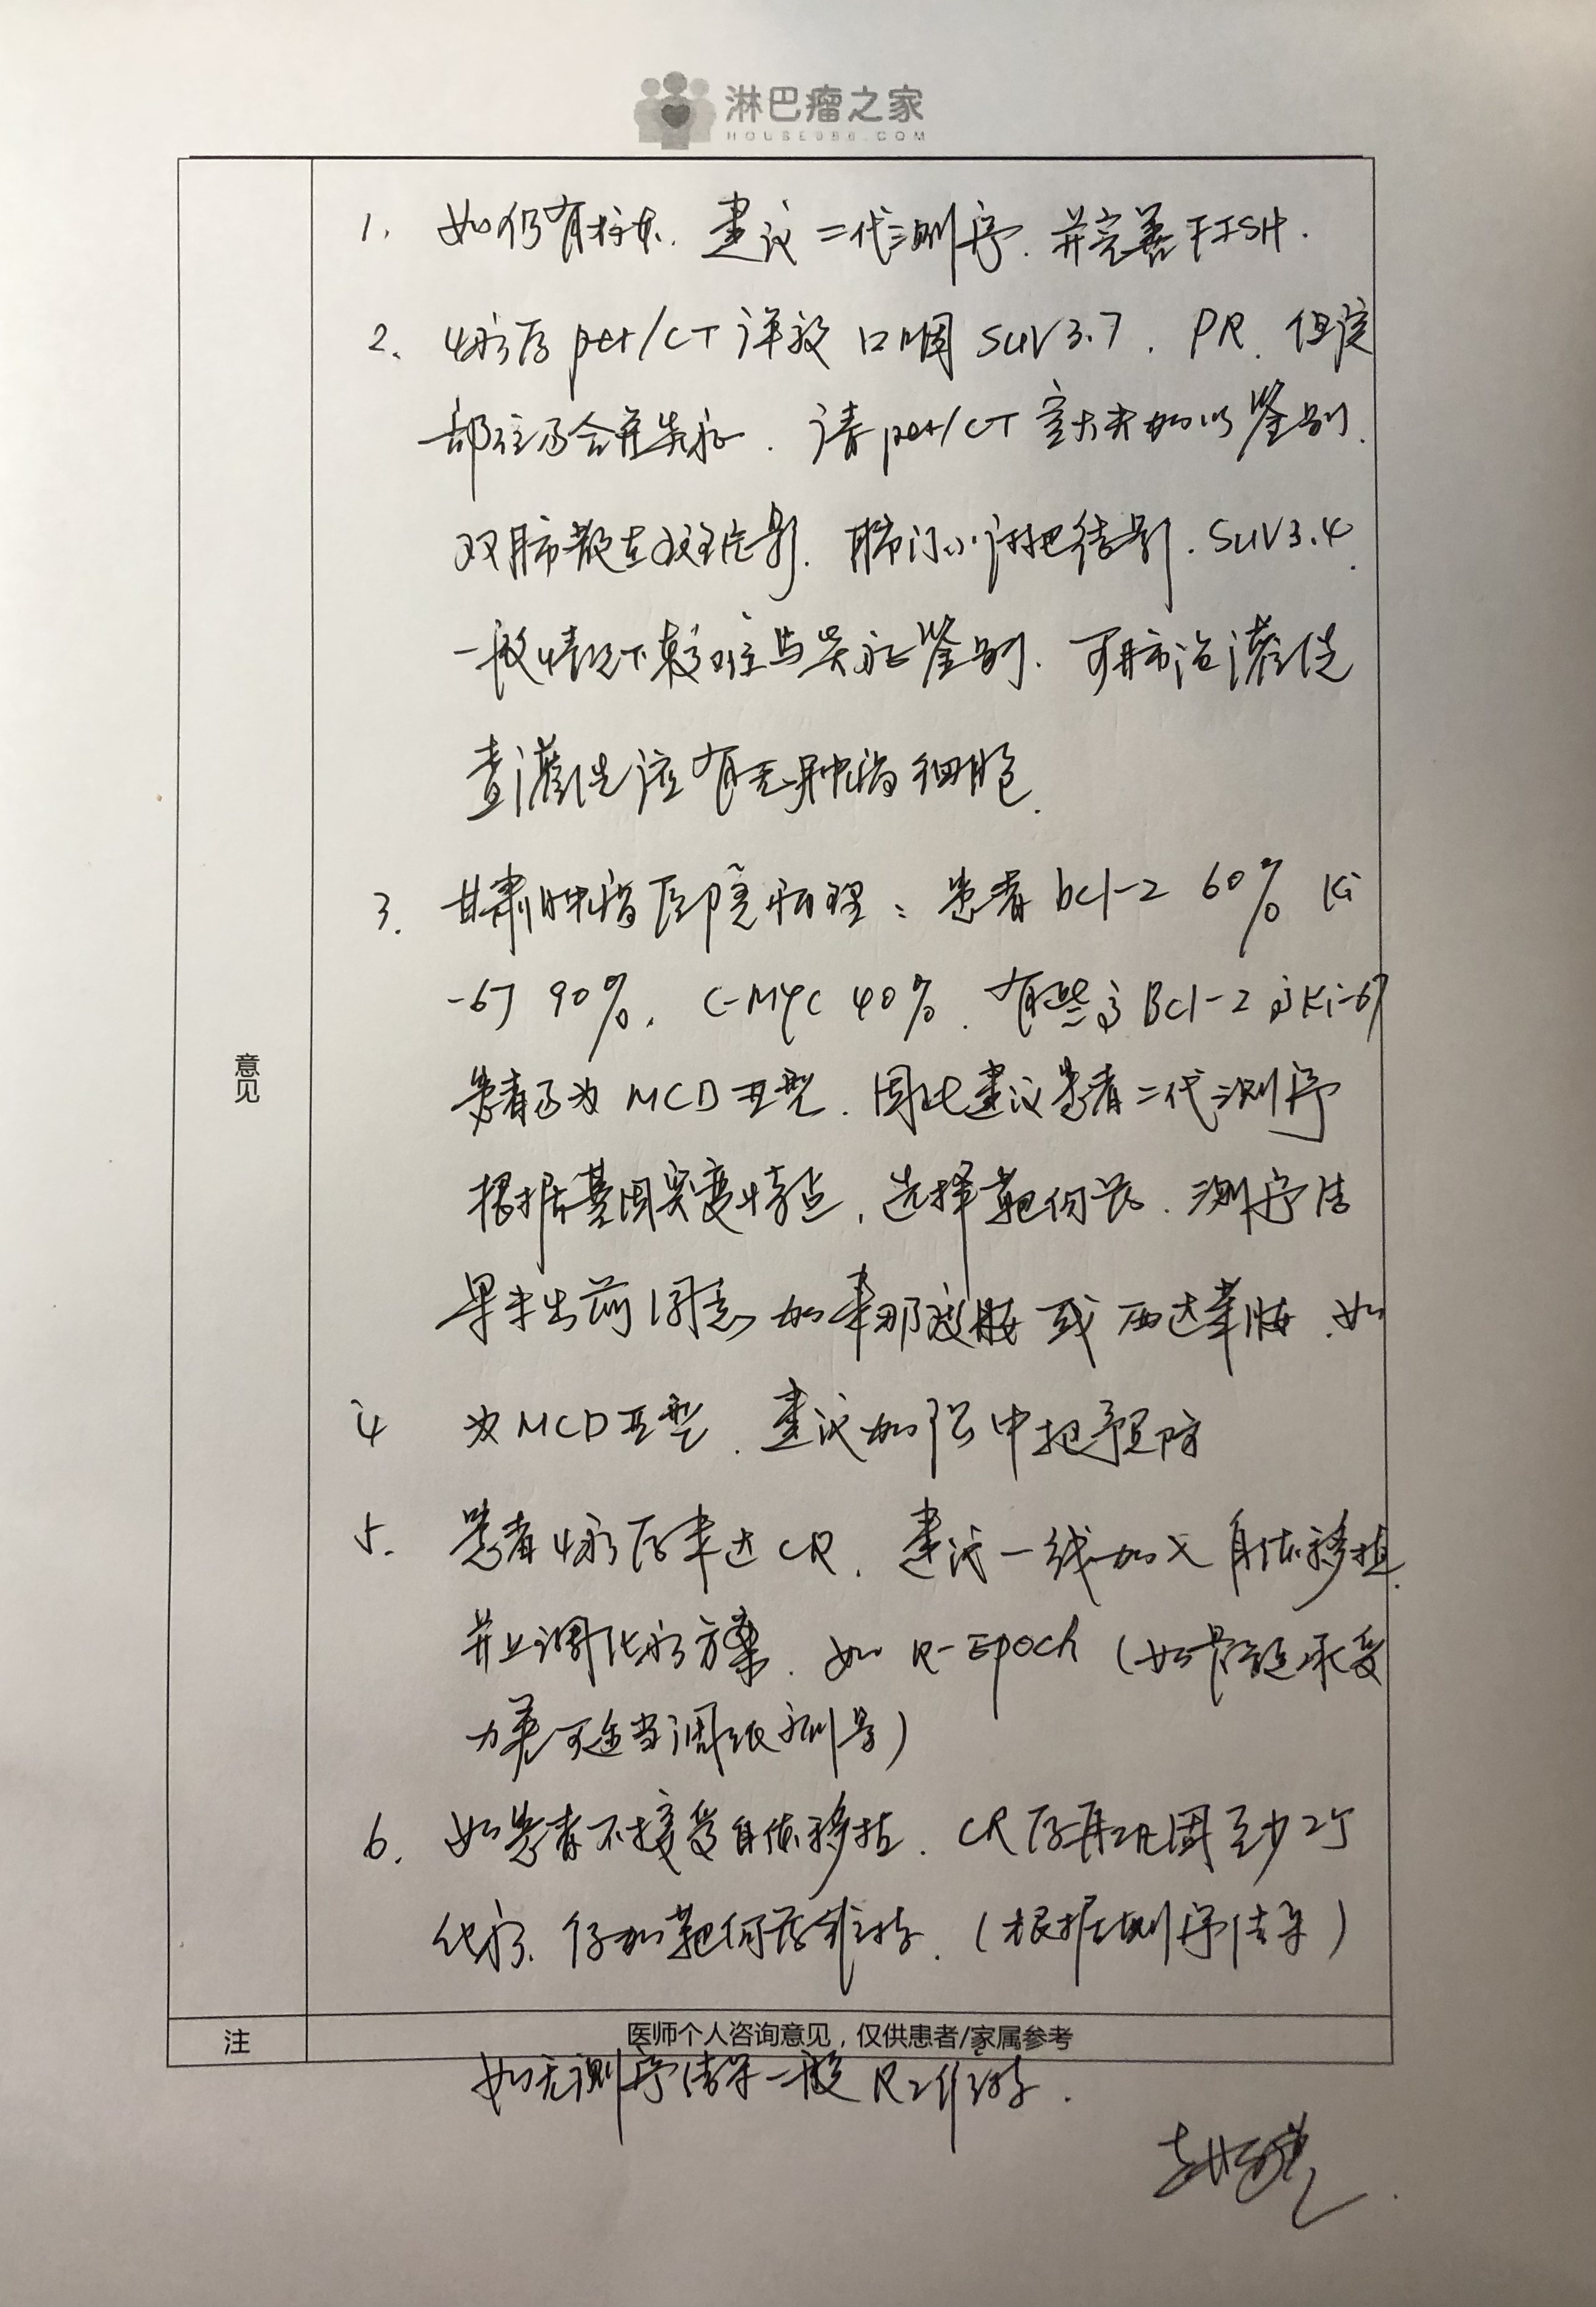 淋巴瘤之家
HOUSE086.COM
1. 如仍有标本. 建议二代测序. 并完善FISH.
2. 4疗后pet/CT 详效 口咽 SUV3.7. PR. 但该
部位易合并炎症. 请pet/CT室大夫加以鉴别.
双肺散在斑片影. 肺门小淋巴结影. SUV3.4.
一般情况下较难与炎症鉴别. 可肺泡灌洗
查灌洗液有无异肿瘤细胞.
3. 甘肃肿瘤医院病理: 患者bcl-2 60% Ki
-67 90%. C-MYC 40%. 有些高Bcl-2高Ki-67
患者易为MCD亚型. 因此建议患者二代测序
根据基因突变特点, 选择靶向药. 测序结
果未出前同意加来那度胺或西达苯胺. 如
4 为MCD亚型. 建议加强中枢预防
5. 患者4疗后未达CR. 建议一线加入自体移植.
并且调化疗方案. 如R-EPOCH (如骨髓承受
力差可适当调低剂量)
6. 如患者不接受自体移植. CR后再巩固至少2个
化疗. 仔加靶向药维持. (根据测序结果)
意见
注
医师个人咨询意见，仅供患者/家属参考
如无测序结果一般R2维持.